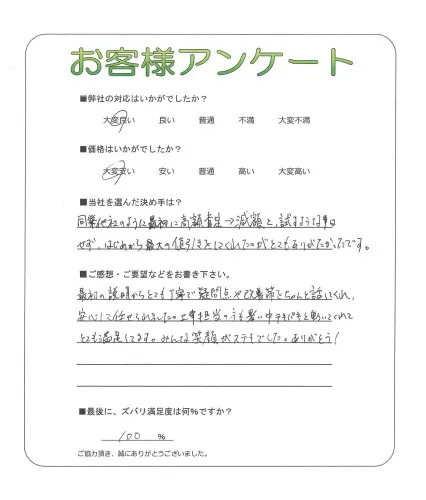 お客様アンケート
■弊社の対応はいかがでしたか?
大変良い 良い 普通 不満 大変不満
■価格はいかがでしたか?
大変安い 安い 普通 高い 大変高い
■当社を選んだ決め手は?
同業他社のように最初に高額査定→減額と、試すような事は
せず、はじめから最大の値引きをしてくれたのがとてもありがたかったです。
■ご感想・ご要望などをお書き下さい。
最初の説明からとても丁寧で疑問点や改善等とちゃんと話してくれ、
安心して任せられました。工事担当の方も暑い中テキパキと動いてくれて
とても満足してます。みんな笑顔がステキでした。ありがとう!
■最後に、ズバリ満足度は何%ですか?
100 %
ご協力頂き、誠にありがとうございました。